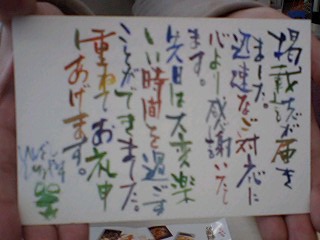 掲載しだが届き
ました。
迅速なご対応に
心より感謝いたし
ます。
先日は大変楽
しい時間を過ごす
ことができました。
重ねてお礼申
しあげます。